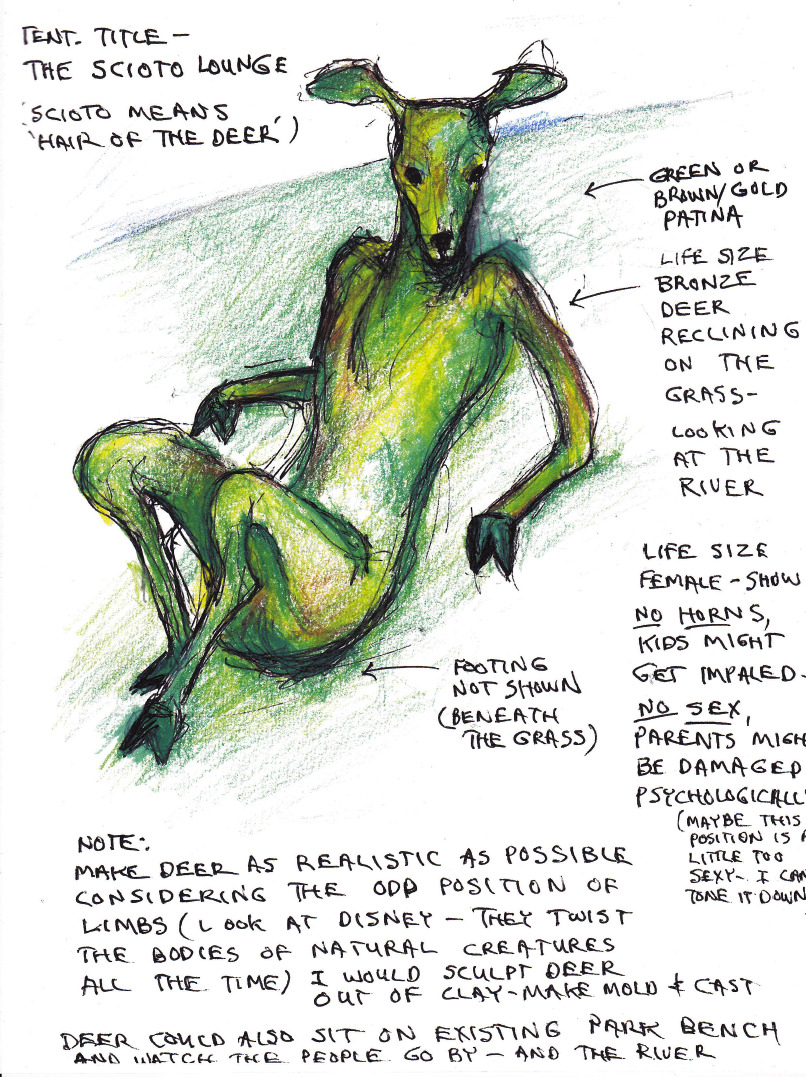 TENT. TITLE -
THE SCIOTO LOUNGE
(SCIOTO MEANS
'HAIR OF THE DEER')
GREEN OR
BROWN/GOLD
PATINA
LIFE SIZE
BRONZE
DEER
RECLINING
ON THE
GRASS-
LOOKING
AT THE
RIVER
LIFE SIZE
FEMALE - SHOW
NO HORNS,
KIDS MIGHT
GET IMPALED-
NO SEX,
PARENTS MIGH
BE DAMAGED
PSYCHOLOGICALL
(MAYBE THIS
POSITION IS A
LITTLE TOO
SEXY- I CAN
TONE IT DOWN
FOOTING
NOT SHOWN
(BENEATH
THE GRASS)
NOTE:
MAKE DEER AS REALISTIC AS POSSIBLE
CONSIDERING THE ODD POSITION OF
LIMBS (LOOK AT DISNEY - THEY TWIST
THE BODIES OF NATURAL CREATURES
ALL THE TIME) I WOULD SCULPT DEER
OUT OF CLAY-MAKE MOLD & CAST
DEER COULD ALSO SIT ON EXISTING PARK BENCH
AND WATCH THE PEOPLE GO BY - AND THE RIVER